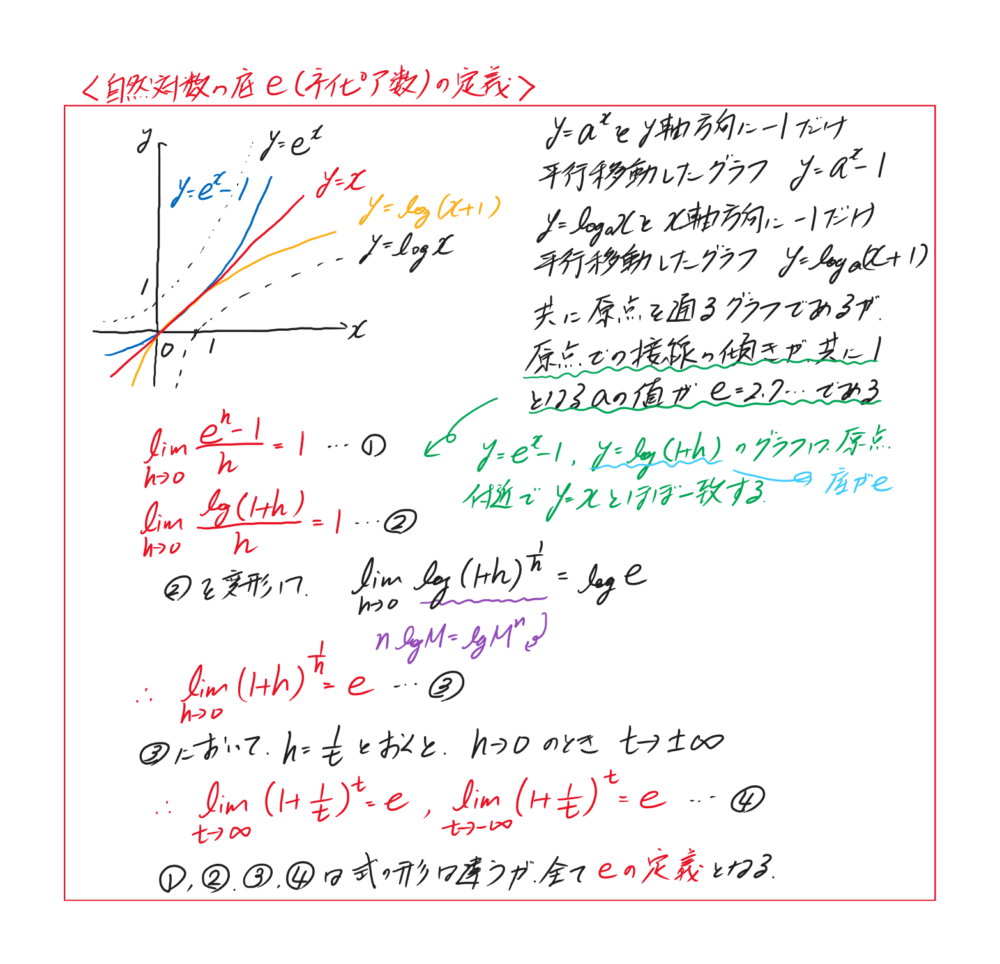 <自然対数の底e(ネイピア数)の定義>
y
y=eˣ
y=eˣ-1
y=x
y=log(x+1)
y=logx
1
0
1
x
y=aˣをy軸方向に-1だけ
平行移動したグラフ y=aˣ-1
y=logₐxをx軸方向に-1だけ
平行移動したグラフ y=logₐ(x+1)
共に原点を通るグラフであるが.
原点での接線の傾きが共に1
となるaの値が e=2.7…である
lim_{h→0} (eʰ-1)/h = 1 … ①
y=eˣ-1, y=log(1+h)のグラフは原点
→ 底がe
付近でy=xとほぼ一致する.
lim_{h→0} log(1+h)/h = 1 … ②
②を変形して. lim_{h→0} log(1+h)^{1/h} = log e
n logM=logMⁿ
∴ lim_{h→0} (1+h)^{1/h} = e … ③
③において. h=1/t とおくと. h→0 のとき t→±∞
∴ lim_{t→∞} (1+1/t)^t = e , lim_{t→-∞} (1+1/t)^t = e … ④
①,②.③,④は式の形は違うが.全てeの定義となる.